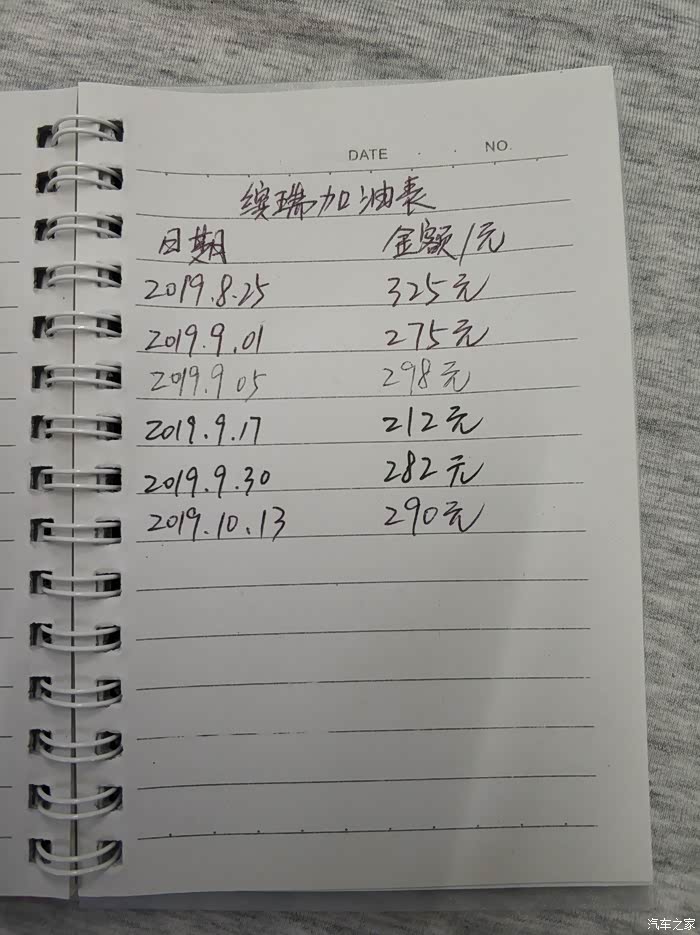 DATE . . NO.
缤瑞加油表
日期 金额/元
2019.8.25 325元
2019.9.01 275元
2019.9 05 298元
2019.9.17 212元
2019.9.30 282元
2019.10.13 290元
汽车之家